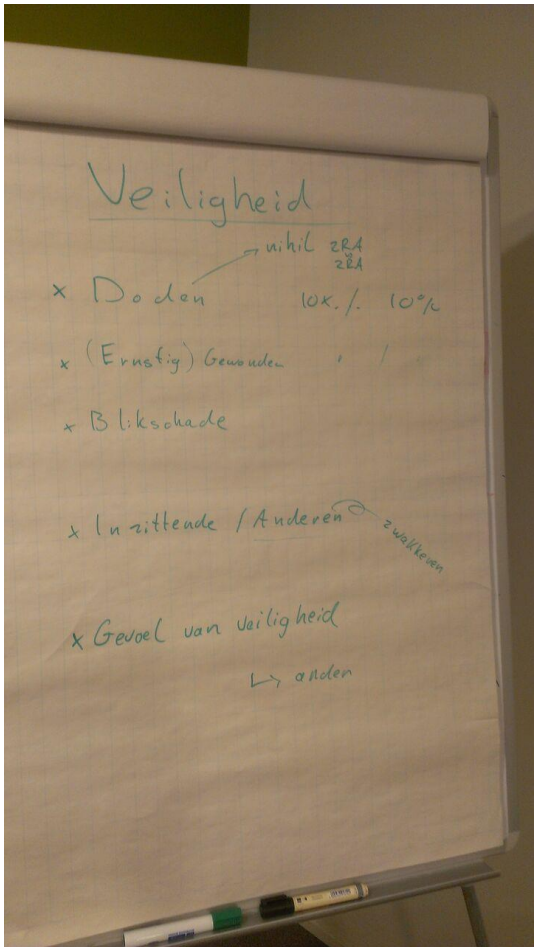 Veiligheid
nihil ZRA
ZRA
x Doden 10x ./. 10%
x (Ernstig) Gewonden
x Blikschade
x Inzittende / Anderen
zwakkeren
x Gevoel van veiligheid
↳ anden